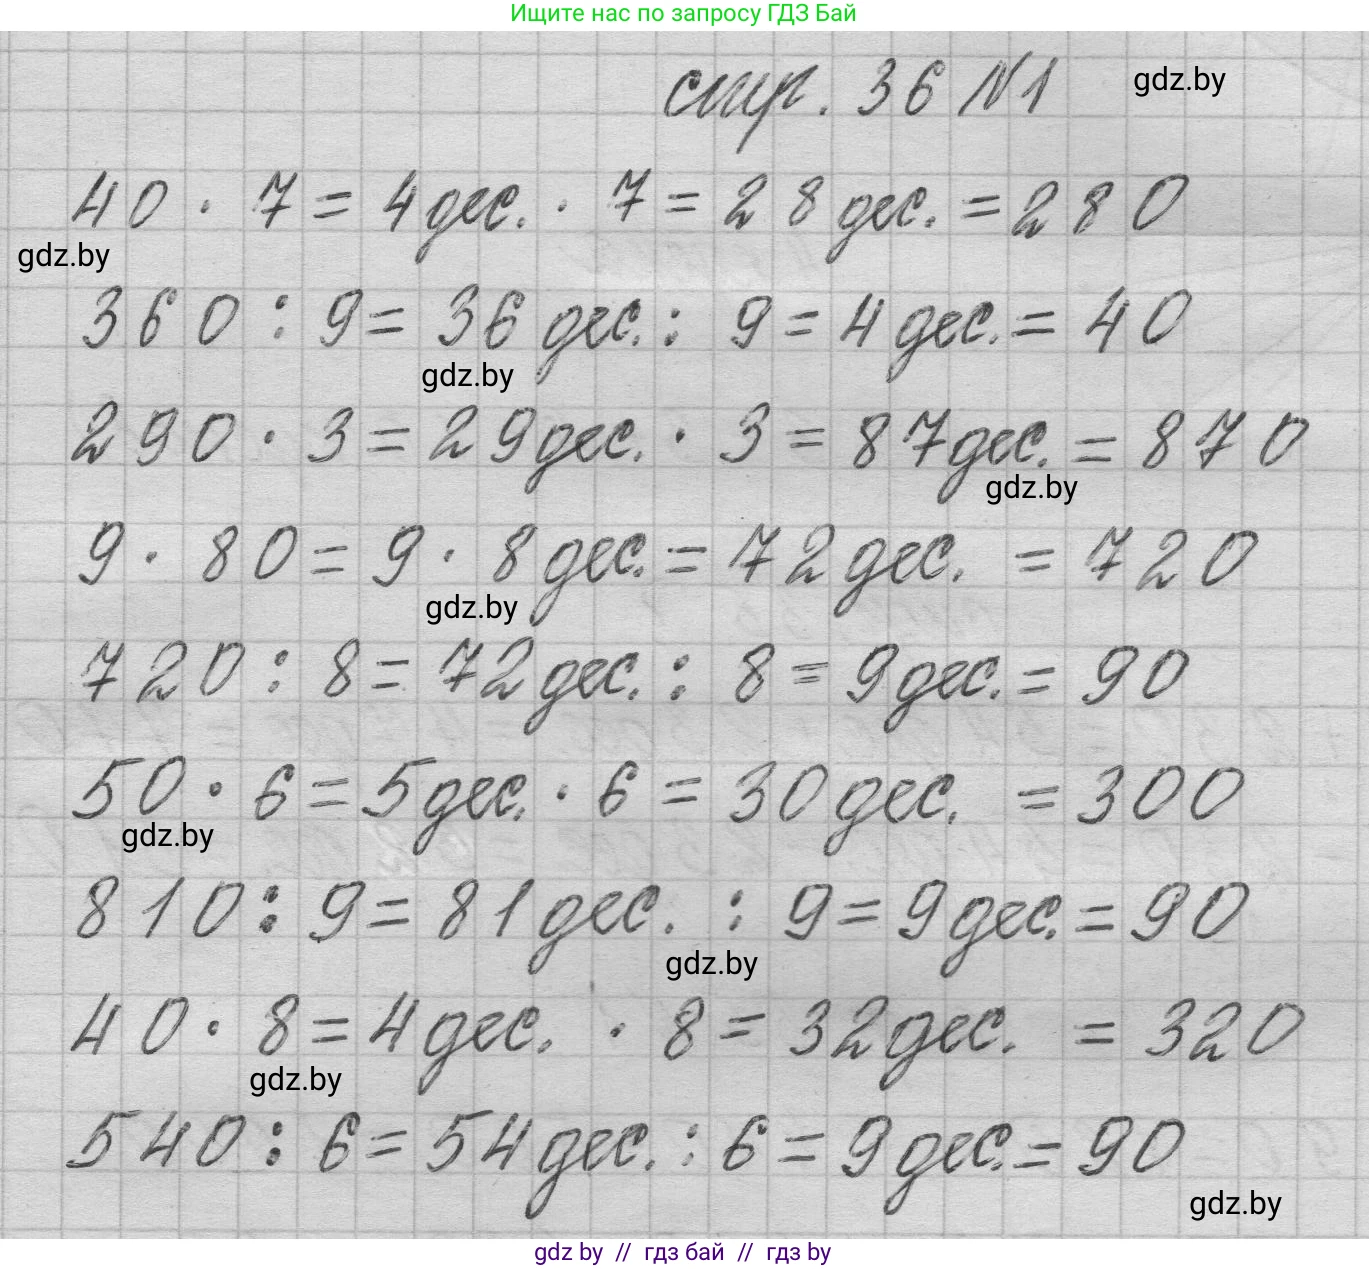 Ищите нас по запросу ГДЗ Бай
стр. 36 №1
gdz.by
40 · 7 = 4 дес. · 7 = 28 дес. = 280
gdz.by
360 : 9 = 36 дес. : 9 = 4 дес. = 40
gdz.by
290 · 3 = 29 дес. · 3 = 87 дес. = 870
gdz.by
9 · 80 = 9 · 8 дес. = 72 дес. = 720
gdz.by
720 : 8 = 72 дес. : 8 = 9 дес. = 90
50 · 6 = 5 дес. · 6 = 30 дес. = 300
gdz.by
810 : 9 = 81 дес. : 9 = 9 дес. = 90
gdz.by
40 · 8 = 4 дес. · 8 = 32 дес. = 320
gdz.by
540 : 6 = 54 дес. : 6 = 9 дес. = 90
gdz.by
gdz by // гдз бай // гдз by